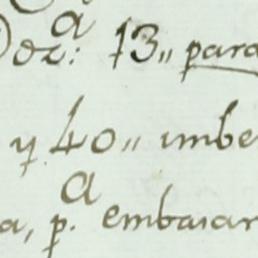 Doz.ª 13,, para
y 40,, imbe
a, p.ª embaiar